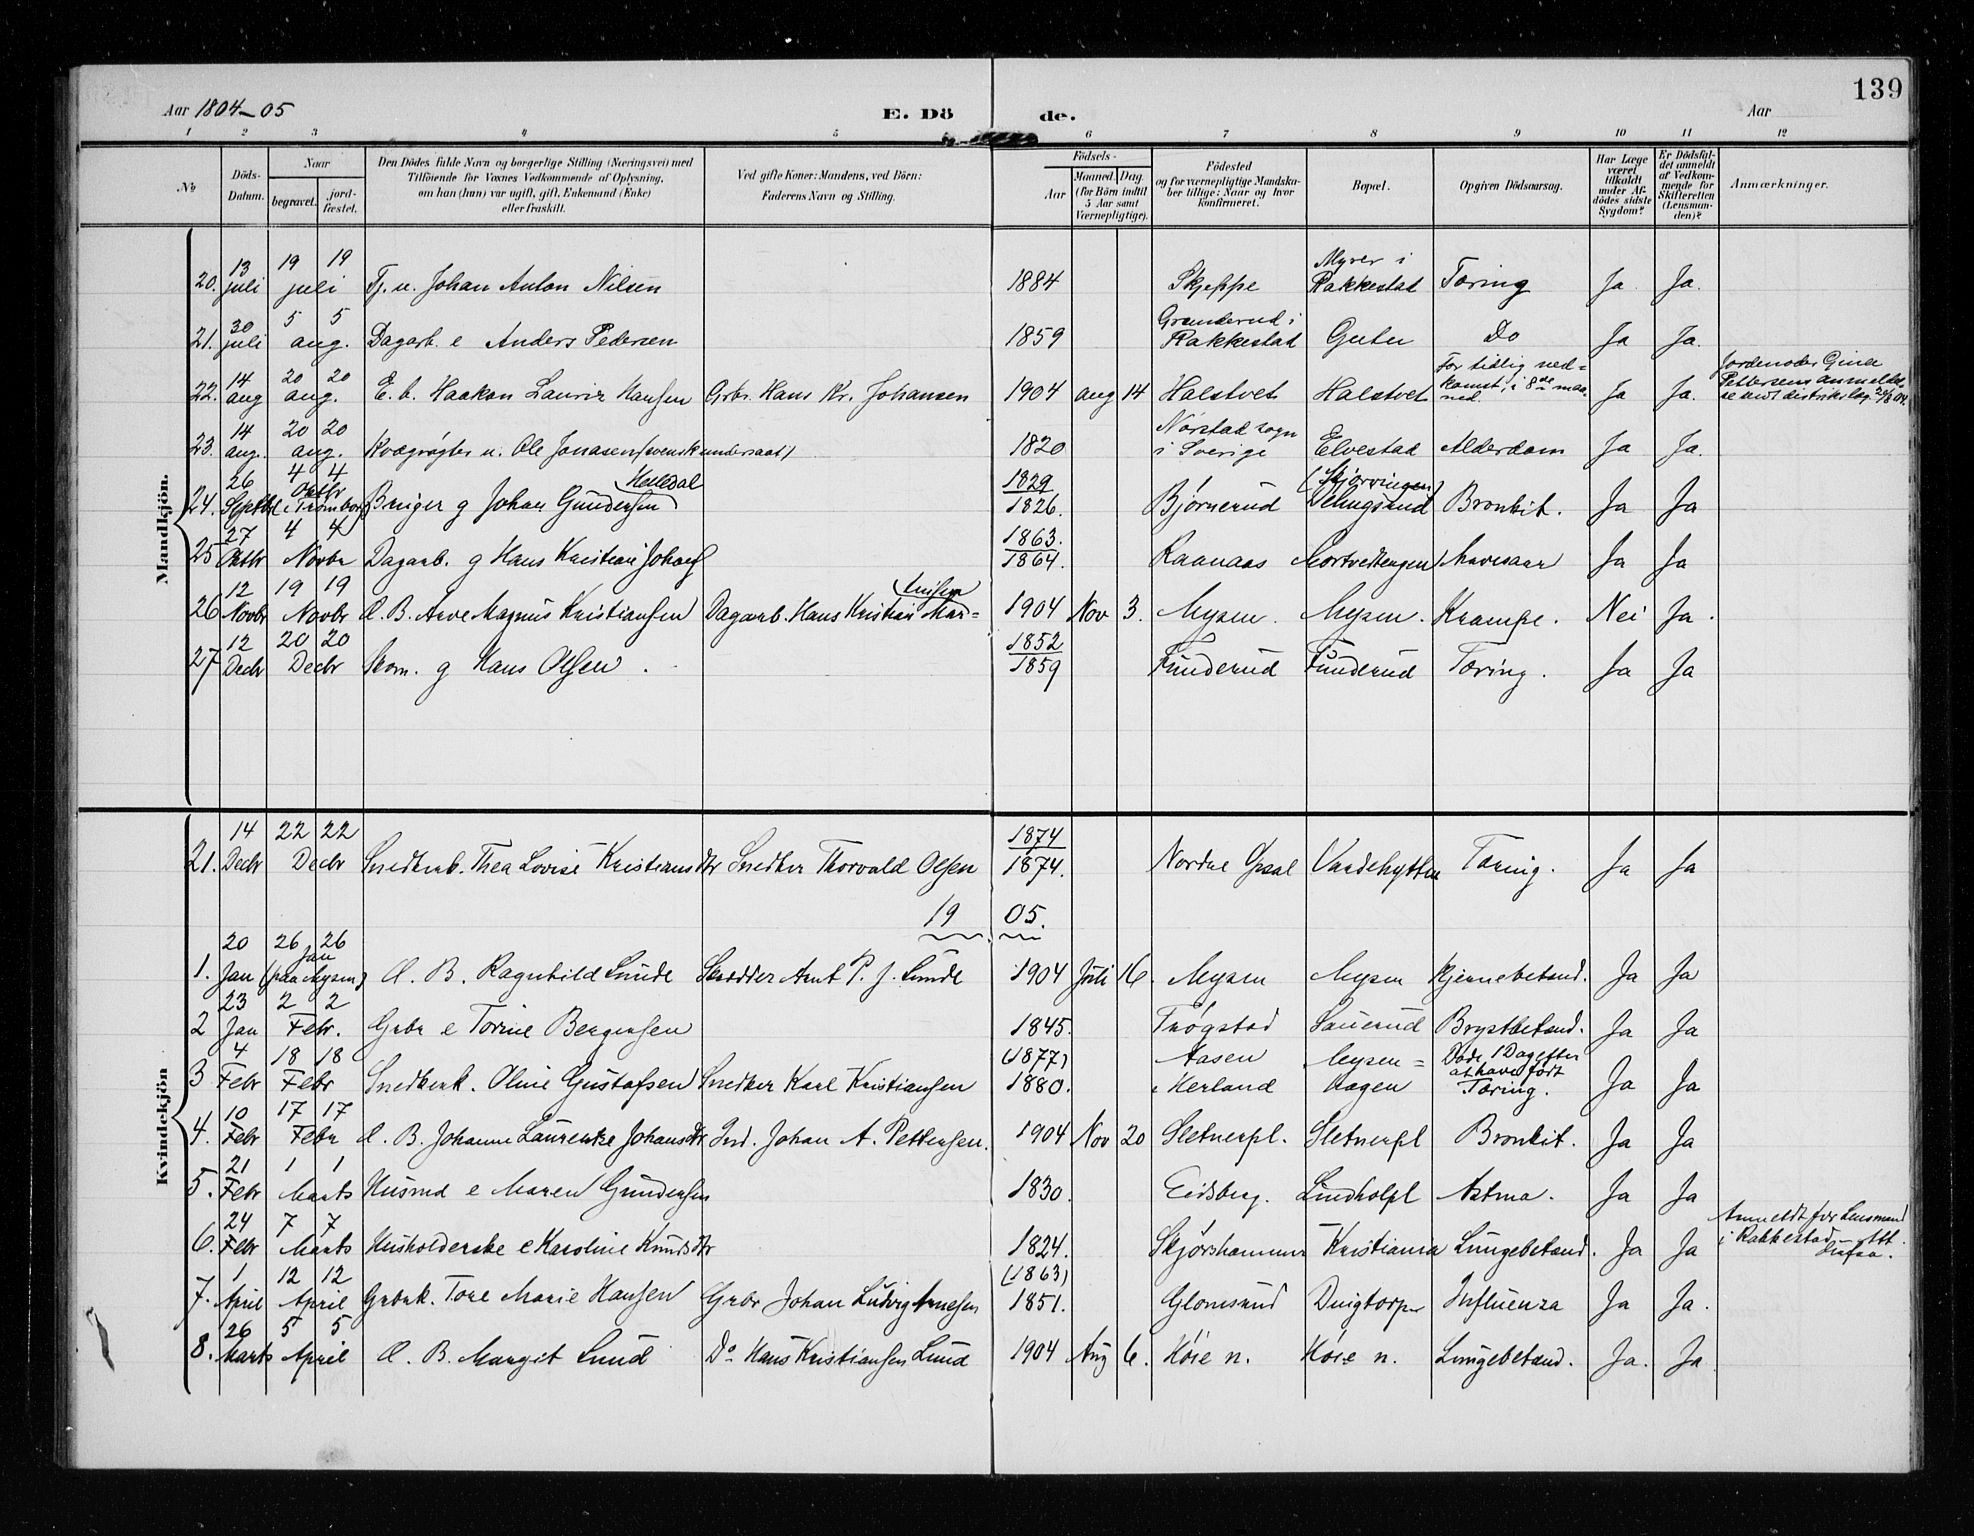 139
Aar 1804-05 E. Dö de. Aar
1 2 3 4 5 6 7 8 9 10 11 12
No Döds-Datum. Naar begravet. jordfæstet. Den Dödes fulde Navn og borgerlige Stilling (Næringsvei) med Tilföiende for Voxnes Vedkommende af Oplysning, om han (hun) var ugift, gift, Enkemand (Enke) eller fraskilt. Ved gifte Koner: Mandens, ved Börn: Faderens Navn og Stilling. Födsels- Aar Maaned. Dag. (for Börn indtil 5 Aar samt Værnepligtige). Födested og for værnepligtige Mandskaber tillige: Naar og hvor konfirmeret. Bopæl. Opgiven Dödsaarsag. Har Læge været tilkaldt under Afdödes sidste Sygdom? Er Dödsfaldet anmeldt af Vedkommende for Skifteretten (Lensmanden)? Anmærkninger.
Mandkjön.
20. 13 juli 19 19 juli Tj. u. Johan Anton Nilsen 1884 Skjeppe Myrer i Rakkestad Tæring Ja Ja.
21. 30 juli 5 5 aug. Dagarb. e Anders Pedersen 1859 Grenderud i Rakkestad Guter Do Ja Ja.
22. 14 aug 20 20 aug. E. b. Haakon Lauriz Hansen Grbr. Hans Kr. Johansen 1904 aug 14 Halstvet Halstvet For tidlig nedkomst, i 8de maaned. Ja Ja. Jordemoder Gina Pettersens anmeldelse
23. 14 aug. 20 20 aug. Kvægrøgter u. Ole Jonasen (svensk undersaat) 1820 Norstad sogn i Sverige Elvestad Alderdom Ja Ja.
24. 26 Septbr 4 4 Oktbr (i Trømborg) Bruger g Johan Gundersen 1829 1826. Bjørnerud (Skjørvingen) Delingsrud Bronkit. Ja Ja
25 27 Oktbr 4 4 Novbr Dagarb. g Hans Kristian Johans 1863. 1864. Kaanaas Mortvedtengen Mavesaar Ja Ja
26 12 Novbr 19 19 Novbr Æ. B. Arve Magnus Kristiansen Dagarb. Hans Kristian Mar- 1904 Nov 3. Mysen. Mysen. Krampe. Nei Ja.
27 12 Decbr 20 20 Decbr Skom. g Hans Olsen. 1852 1859 Funderud Funderud Tæring. Ja Ja
Kvindekjön
21. 14 Decbr 22 22 Decbr Snedkerk. Thea Lovise Kristiansdtr Snedker Thorvald Olsen 1874 1874. Nordre Opsal Vardehytten Tæring. Ja Ja
19 05.
1. 20 Jan 26 26 Jan (paa Mysen) Æ. B. Ragnhild Lunde Skrædder Arnt P. J. Lunde 1904 Juli 16. Mysen Mysen Hjernebetænd. Ja Ja
2 23 Jan 2 2 Febr. Grbr e Torine Bergersen 1845. Trøgstad Sauerud Brystbetænd. Ja Ja
3 4 Febr 18 18 Febr Snedkerk. Oline Gustafsen Snedker Karl Kristiansen (1877) 1880. Aasen i Herland Mysen-Hagen Døde 1 Dag efter at have født Tæring. Ja Ja
4. 10 Febr 17 17 Febr Æ. B. Johanne Laurentze Johansdtr Ind. Johan A. Pettersen. 1904 Nov 20 Sletnerpl. Sletnerpl Bronkit. Ja Ja
5. 21 Febr 1 1 Marts Husmd e Maren Gundersen 1830. Eidsberg. Lindholpl Astma. Ja Ja
6. 24 Febr 7 7 Marts Husholderske e Karoline Knudsdtr 1824. Skjørshammer Kristiania Lungebetænd. Ja Ja Anmeldt for Lensmand i Rakkestad -
7. 1 April 12 12 April Grbrk. Tore Marie Hansen Grbr Johan Ludvig Arnesen (1863) 1851. Glomsrud Duigtorp Influenza Ja Ja.
8. 26 Marts 5 5 April Æ. B. Margit Lund Do Hans Kristiansen Lund 1904 Aug 6. Høie n. Høie n. Lungebetænd. Ja. Ja.